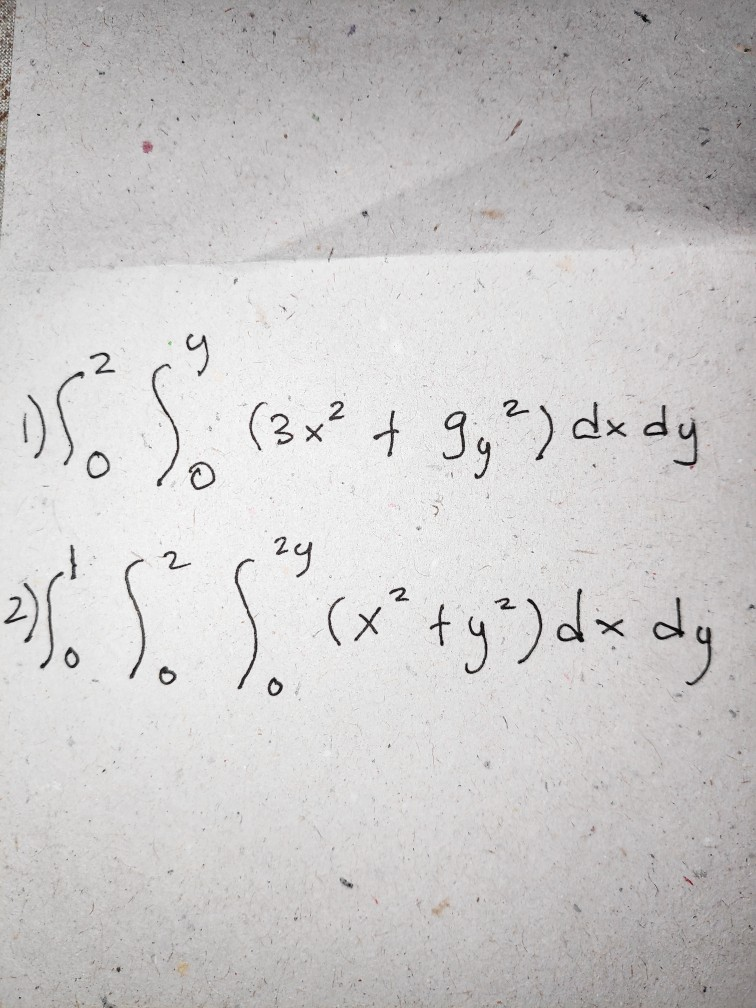 1) ∫₀² ∫₀^y (3x² + 9y²) dx dy
2) ∫₀¹ ∫₀² ∫₀^2y (x² + y²) dx dy